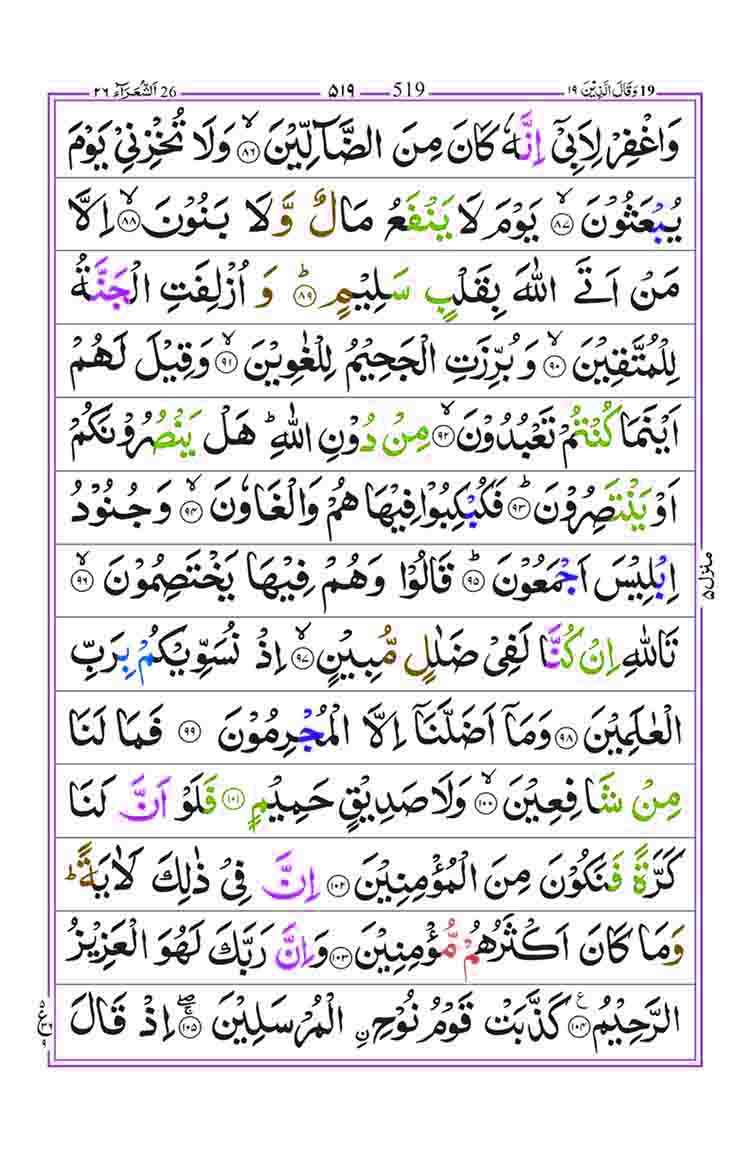 ١٩ وَقَالَ الَّذِيْنَ 19 519 ٥١٩ 26 اَلشُّعَرَآء ٢٦
وَاغْفِرْ لِاَبِىْٓ اِنَّهٗ كَانَ مِنَ الضَّآلِّيْنَ ۙ‏﴿۸۶﴾ وَلَا تُخْزِنِىْ يَوْمَ
يُبْعَثُوْنَۙ‏ ﴿۸۷﴾ يَوْمَ لَا يَنْفَعُ مَالٌ وَّلَا بَنُوْنَۙ‏ ﴿۸۸﴾ اِلَّا
مَنْ اَتَى اللّٰهَ بِقَلْبٍ سَلِيْمٍؕ‏ ﴿۸۹﴾ وَاُزْلِفَتِ الْجَنَّةُ
لِلْمُتَّقِيْنَۙ‏ ﴿۹۰﴾ وَبُرِّزَتِ الْجَحِيْمُ لِلْغٰوِيْنَۙ‏ ﴿۹۱﴾ وَقِيْلَ لَهُمْ
اَيْنَمَا كُنْتُمْ تَعْبُدُوْنَۙ‏ ﴿۹۲﴾ مِنْ دُوْنِ اللّٰهِؕ هَلْ يَنْصُرُوْنَكُمْ
اَوْ يَنْتَصِرُوْنَؕ‏ ﴿۹۳﴾ فَكُبْكِبُوْا فِيْهَا هُمْ وَالْغَاوٗنَۙ‏ ﴿۹۴﴾ وَجُنُوْدُ
اِبْلِيْسَ اَجْمَعُوْنَؕ‏ ﴿۹۵﴾ قَالُوْا وَهُمْ فِيْهَا يَخْتَصِمُوْنَۙ‏ ﴿۹۶﴾
تَاللّٰهِ اِنْ كُنَّا لَفِىْ ضَلٰلٍ مُّبِيْنٍۙ‏ ﴿۹۷﴾ اِذْ نُسَوِّيْكُمْ بِرَبِّ
الْعٰلَمِيْنَ‏ ﴿۹۸﴾ وَمَاۤ اَضَلَّنَاۤ اِلَّا الْمُجْرِمُوْنَ‏ ﴿۹۹﴾ فَمَا لَنَا
مِنْ شَافِعِيْنَۙ‏ ﴿۱۰۰﴾ وَلَا صَدِيْقٍ حَمِيْمٍ‏ ﴿۱۰۱﴾ فَلَوْ اَنَّ لَنَا
كَرَّةً فَنَكُوْنَ مِنَ الْمُؤْمِنِيْنَ‏ ﴿۱۰۲﴾ اِنَّ فِىْ ذٰلِكَ لَاٰيَةًؕ
وَمَا كَانَ اَكْثَرُهُمْ مُّؤْمِنِيْنَ‏ ﴿۱۰۳﴾ وَاِنَّ رَبَّكَ لَهُوَ الْعَزِيْزُ
الرَّحِيْمُ ﴿۱۰۴﴾ ع كَذَّبَتْ قَوْمُ نُوْحِ ۨ الْمُرْسَلِيْنَ ۖۚ‏ ﴿۱۰۵﴾ اِذْ قَالَ
منزل ٥